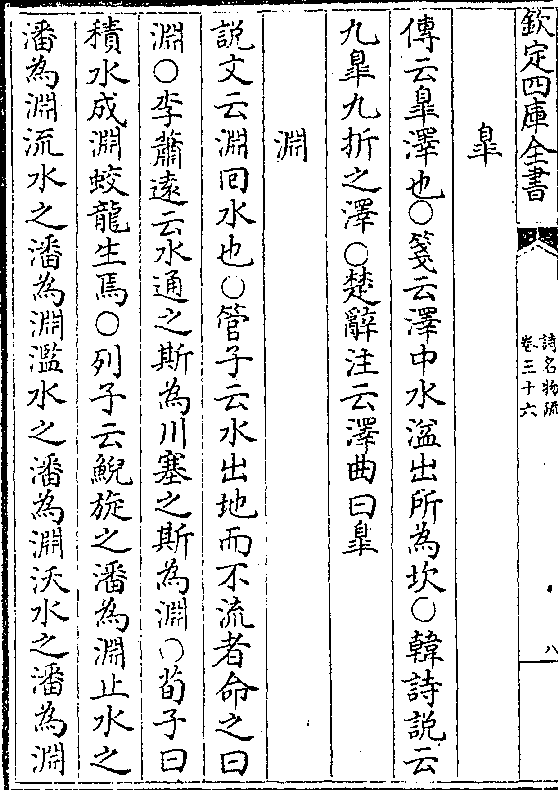 欽定四庫全書
詩名物疏
卷三十六
八
皐
傳云皐澤也○箋云澤中水溢出所為坎○韓詩説云
九皐九折之澤○楚辭注云澤曲曰皐
淵
説文云淵回水也○管子云水出地而不流者命之曰
淵○李蕭逺云水通之斯為川塞之斯為淵○荀子曰
積水成淵蛟龍生焉○列子云鯢旋之潘為淵止水之
潘為淵流水之潘為淵濫水之潘為淵沃水之潘為淵